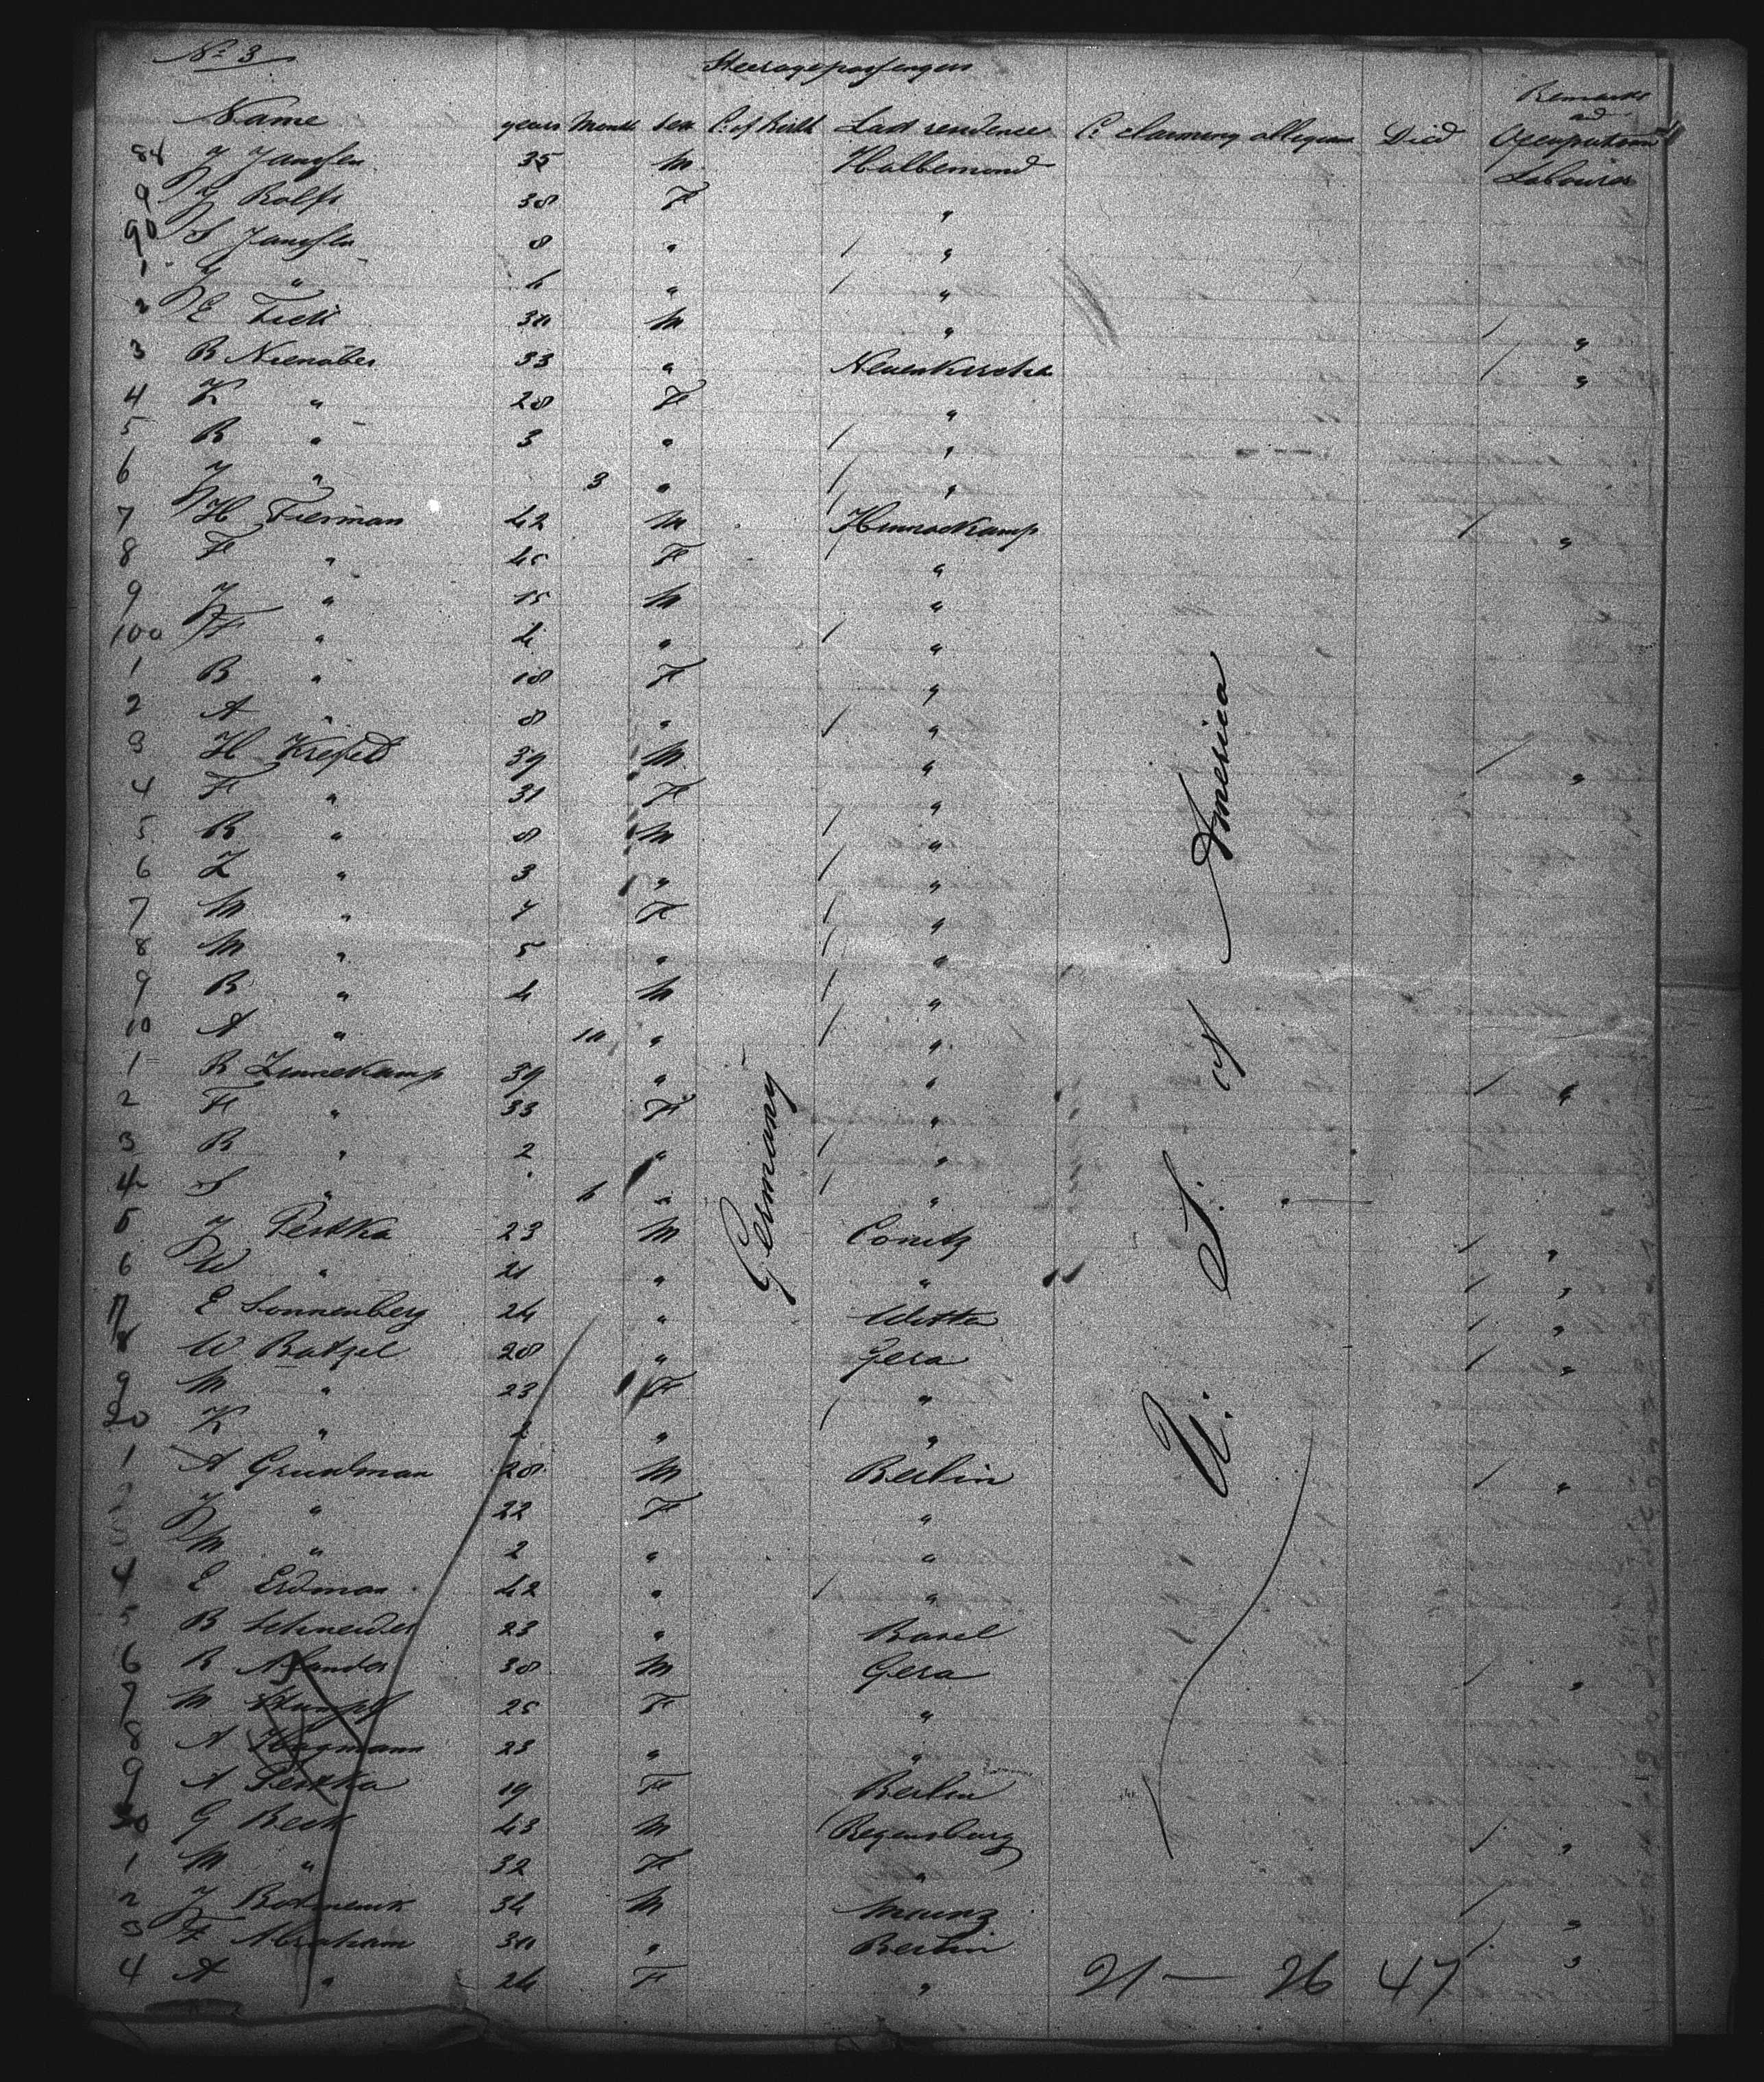 No 3 Steeragepassengers
Name years Month sex C. of Birth Last residence C. claiming allegian Died Remarks ad Occupation
88 J Janssen 35 M Halbemond Labourer
9 G Rolfs 38 F "
90 S Janssen 8 " / "
1 J " 6 " / "
2 E Fick 30 M " / "
3 B Nienaber 33 " Neuenkirche / "
4 K " 28 F "
5 B " 3 " / "
6 J " 3 " / "
7 H Tierman 42 M Hinnaekamp / "
8 F " 45 F "
9 J " 15 M "
100 F " 4 " / "
1 B " 18 F "
2 A " 8 " / "
3 H Krefeld 39 M " / "
4 F " 31 F "
5 B " 8 M / "
6 L " 3 " / "
7 M " 7 F / "
8 M " 5 " / "
9 B " 4 M / "
10 A " 10 " / "
1 B Linnekamp 39 " " / "
2 F " 33 F "
3 B " 2 " / "
4 S " 6 " / "
5 J Pestka 23 M Conitz / "
6 W " 21 " " / "
7 E Sonnenberg 24 " Witten / "
8 W Batzel 28 " Gera / "
9 M " 23 F "
20 K " 2 " / "
1 A Grundman 28 M Berlin / "
2 J " 22 F "
3 M " 2 " "
4 E Erdman 42 " / "
5 B Schneider 23 " Basel
6 R 38 M Gera / "
7 M Stumpf 25 F "
8 A Hagmann 23 " "
9 A Pestka 19 F Berlin
30 G Beck 43 M Regensburg / "
1 M " 32 F "
2 J 34 M Mainz / "
3 F Abraham 30 " Berlin / "
4 A " 24 F "
Germany
U. S. of America
21 — 26 47